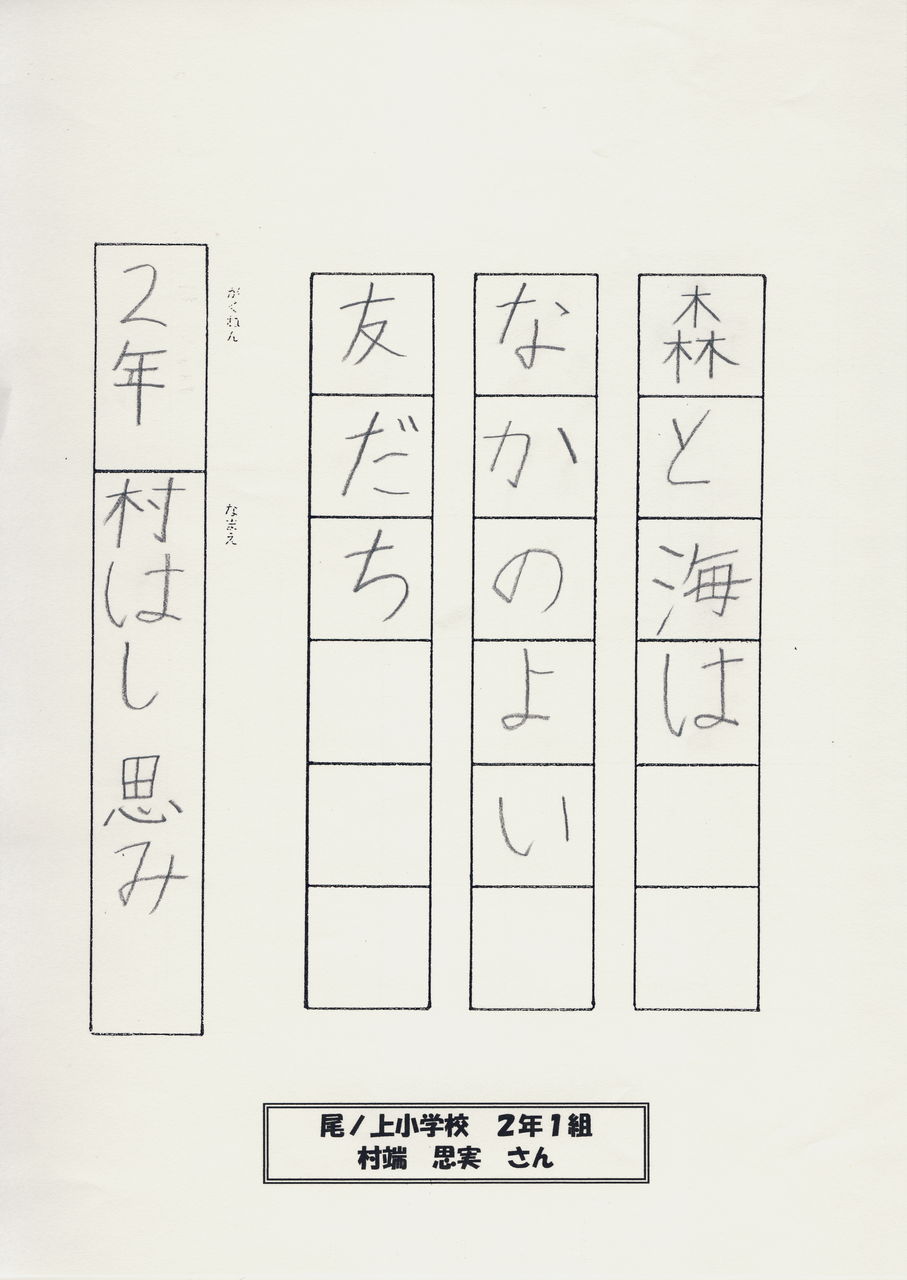 森と海は
なかのよい
友だち
がくねん
2年
なまえ
村はし 思み
尾ノ上小学校 2年1組
村端 思実 さん